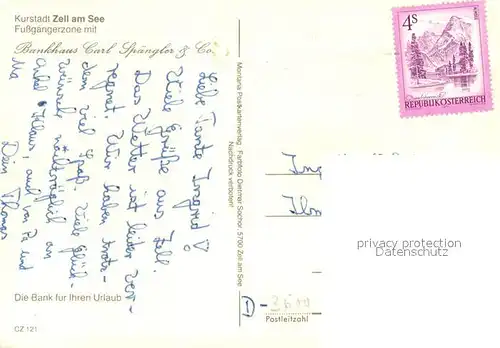 Kurstadt Zell am See
Fußgängerzone mit
Bankhaus Carl Spängler & Co.
Liebe Tante Ingrid
Viele Grüße aus Zell.
Das Wetter ist leider ver-
regnet. Wir haben trotz-
dem viel Spaß. Viele Glück-
wünsche nachträglich an
Onkel Klaus, auch von Pa und
Ma
Dein Thomas
Die Bank für Ihren Urlaub
CZ 121
Montana Postkartenverlag · Farbfoto Dietmar Sochor, 5700 Zell am See
Nachdruck verboten!
4 S
REPUBLIK ÖSTERREICH
privacy protection
VEIKKOS.COM
D-
Postleitzahl